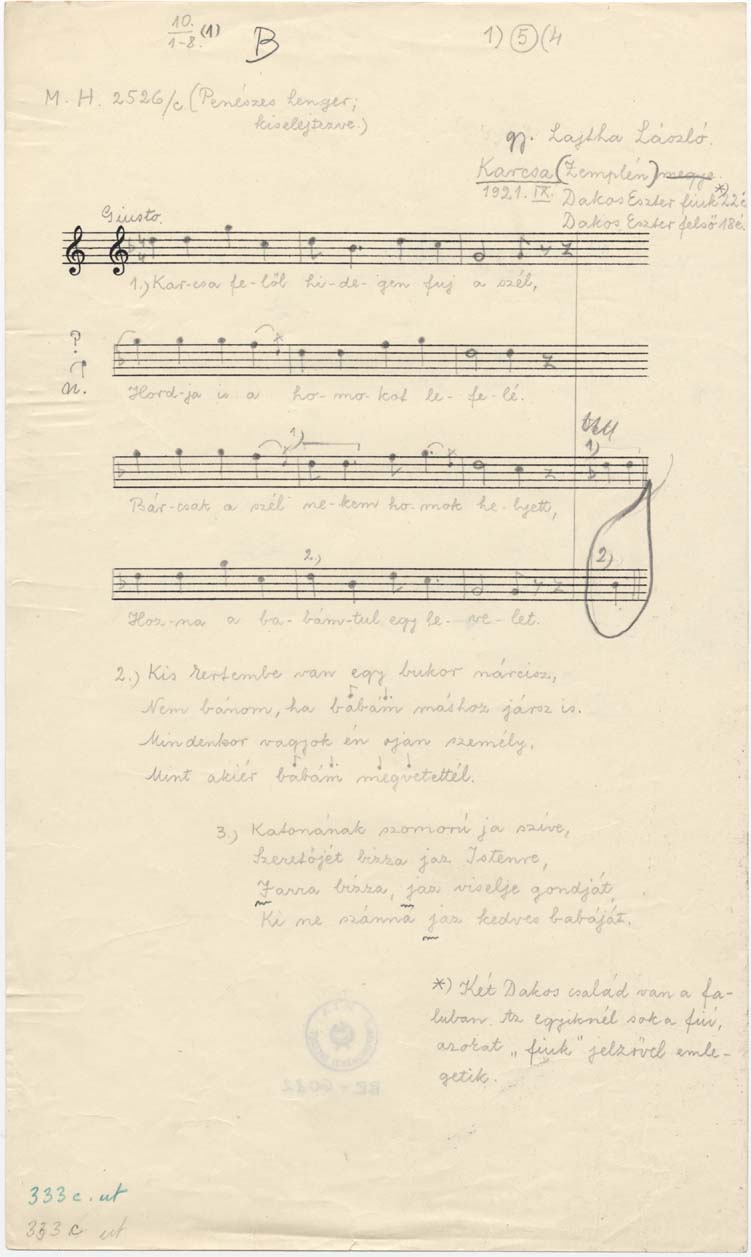 10. (1)
1-8.
B
1) 5 (4
M. H. 2526/c (Penészes henger;
kiselejtezve.)
gy. Lajtha László.
Karcsa (Zemplén) megye.
1921. IX. Dakos Eszter fiuk *) 22 é
Dakos Eszter felső 18 é.
Giusto.
1.) Kar-csa fe-lől hi-de-gen fuj a szél,
Hord-ja is a ho-mo-kot le-fe-lé.
Bár-csak a szél ne-kem ho-mok he-lyett,
1)
1)
Hoz-na a ba-bám-tul egy le-ve-let.
2.)
2)
2.) Kis kertembe van egy bukor nárcisz,
Nem bánom, ha babám máshoz jársz is.
Mindenkor vagyok én ojan személy,
Mint akiér babám megvetettél.
3.) Katonának szomorú ja szíve,
Szeretőjét bizza jaz Istenre,
Jarra bizza, jaz viselje gondját,
Ki ne szánná jaz kedves babáját.
*) Két Dakos család van a fa-
luban. Az egyiknél sok a fiú,
azokat „fiuk" jelzővel emle-
getik.
333 c. ut
333 c ut